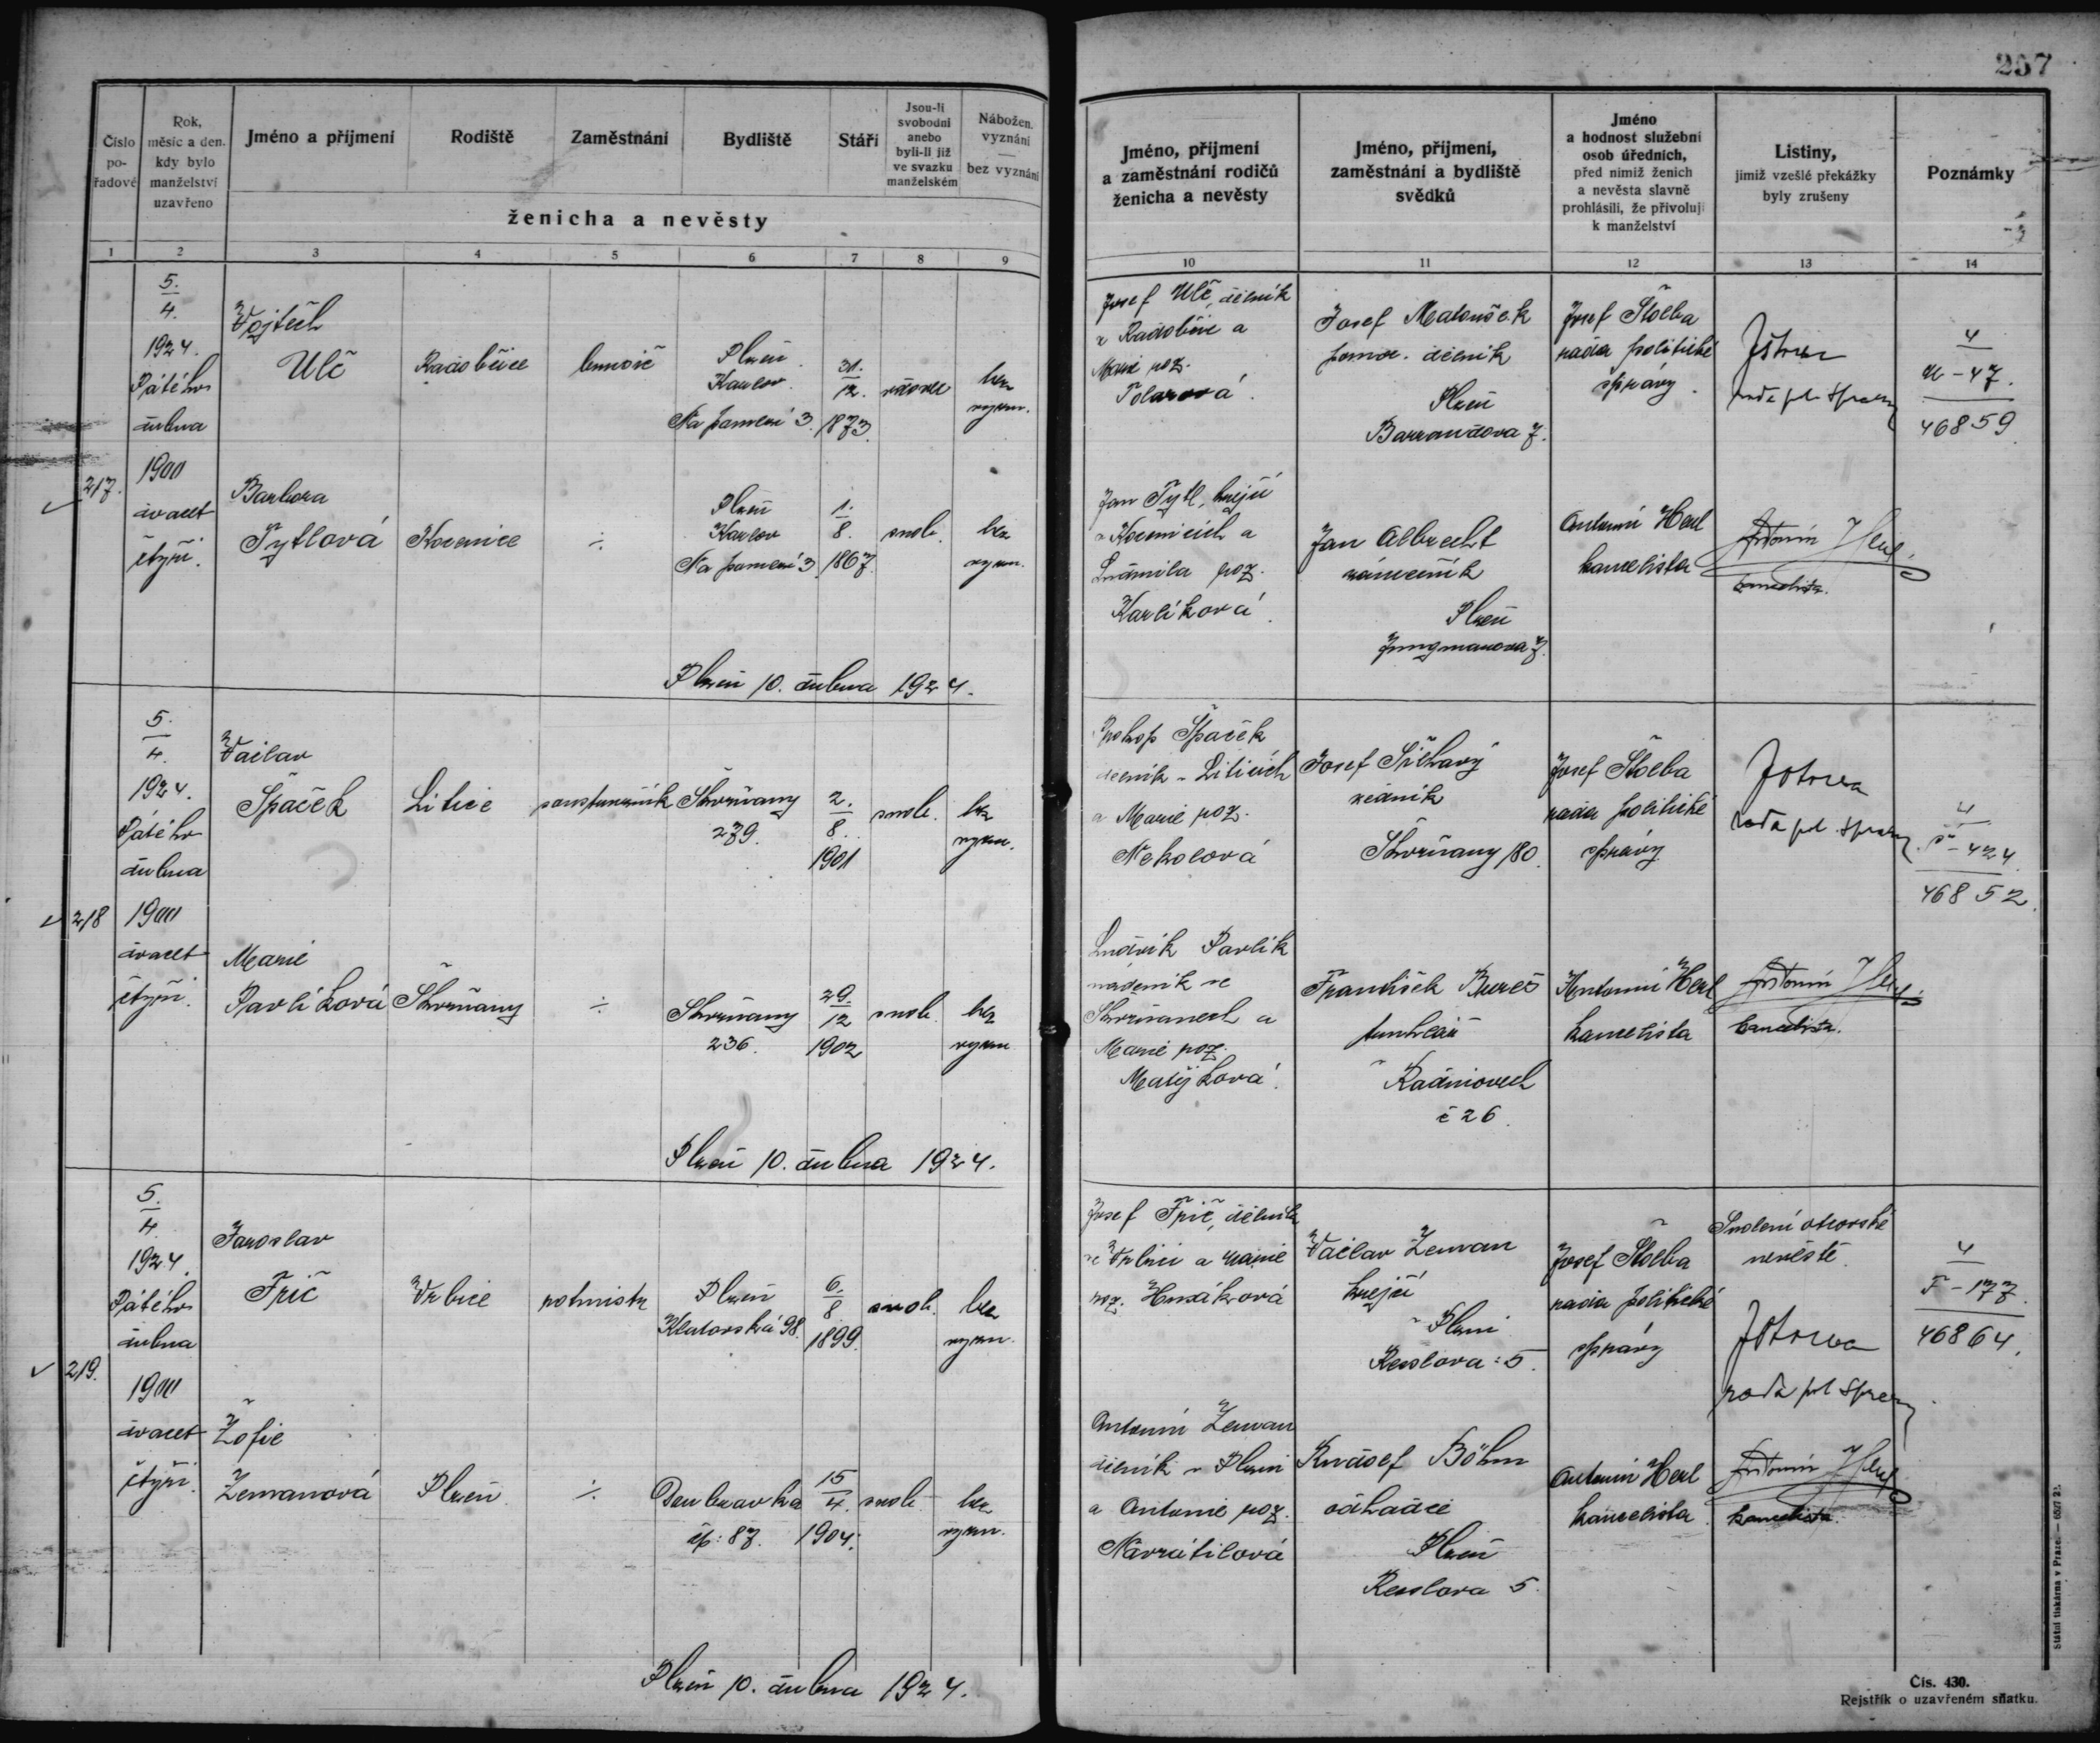 207
Číslo pořadové
Rok, měsíc a den, kdy bylo manželství uzavřeno
Jméno a příjmení
Rodiště
Zaměstnání
Bydliště
Stáří
Jsou-li svobodni anebo byli-li již ve svazku manželském
Nábožen. vyznání — bez vyznání
ženicha a nevěsty
1 2 3 4 5 6 7 8 9
5.
4.
1924.
Pátého
dubna
1900
dvacet
čtyři.
217.
Vojtěch
Ulč
Radobčice
Plzeň
Karlov
Na pomezí 3.
31.
12.
1873.
vdovec
bez
vyzn.
Barbora
Tytlová
Kocenice
÷
Plzeň
Karlov
Na pomezí 3.
1.
8.
1867.
svob.
bez
vyzn.
Plzeň 10. dubna 1924.
5.
4.
1924.
Pátého
dubna
218
1900
dvacet
čtyři.
Václav
Špaček
Litice
soustružník
Skvrňany
279.
2.
8.
1901
svob.
bez
vyzn.
Marie
Pavlíková
Skvrňany
÷
Skvrňany
236.
29.
12
1902
svob.
bez
vyzn
Plzeň 10. dubna 1924.
5.
4.
1924.
Pátého
dubna
219.
1900
dvacet
čtyři.
Jaroslav
Frič
Vrbice
rotmistr
Plzeň
Klatovská 98.
6.
8
1899.
svob.
bez
vyzn.
Žofie
Zemanová
Plzeň
÷
Doubravka
čp: 87.
15
4.
1904.
svob.
bez
vyzn.
Plzeň 10. dubna 1924.
Jméno, příjmení a zaměstnání rodičů ženicha a nevěsty
Jméno, příjmení, zaměstnání a bydliště svědků
Jméno a hodnost služební osob úředních, před nimiž ženich a nevěsta slavně prohlásili, že přivolují k manželství
Listiny, jimiž vzešlé překážky byly zrušeny
Poznámky
10 11 12 13 14
Josef Ulč, dělník
z Radobčic a
Marie roz.
Tolarová.
Josef Matoušek
pomoc. dělník
Plzeň
Barrandova 7.
Josef Štolba
rada politické
správy.
rada pol. správy
4
U-47.
46859.
Jan Tytl, krejčí
v Kocenicích a
Ludmila roz.
Karlíková.
Jan Albrecht
zámečník
Plzeň
Jungmanova 7.
Antonín Herl
kancelista
Antonín Herl
kancelista.
Prokop Špaček
dělník v Liticích
a Marie roz.
Nekolová
Josef Šilhavý
zedník
Skvrňany 180.
Josef Štolba
rada politické
správy
rada pol. správy
4
Š-424.
46852.
Ludvík Pavlík
nádeník ve
Skvrňanech a
Marie roz.
Matějková.
František Bureš
truhlář
v Radniovech
č 26.
Antonín Herl
kancelista
Antonín Herl
kancelista.
Josef Frič, dělník
ve Vrbici a Marie
roz. Husáková
Václav Zeman
krejčí
v Plzni
Resslova: 5.
Josef Štolba
rada politické
správy
Svolení otcovské
nevěstě.
rada pol správy
4
F-177.
46864.
Antonín Zeman
dělník v Plzni
a Antonie roz.
Navrátilová
Rudolf Böhm
odhadce
Plzeň
Resslova 5.
Antonín Herl
kancelista.
Antonín Herl
kancelista.
Státní tiskárna v Praze.
Čís. 430.
Rejstřík o uzavřeném sňatku.